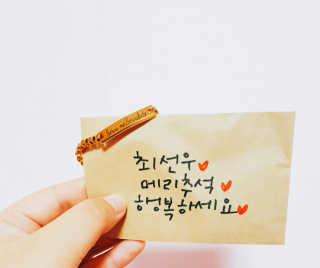 최선우
메리추석
행복하세요